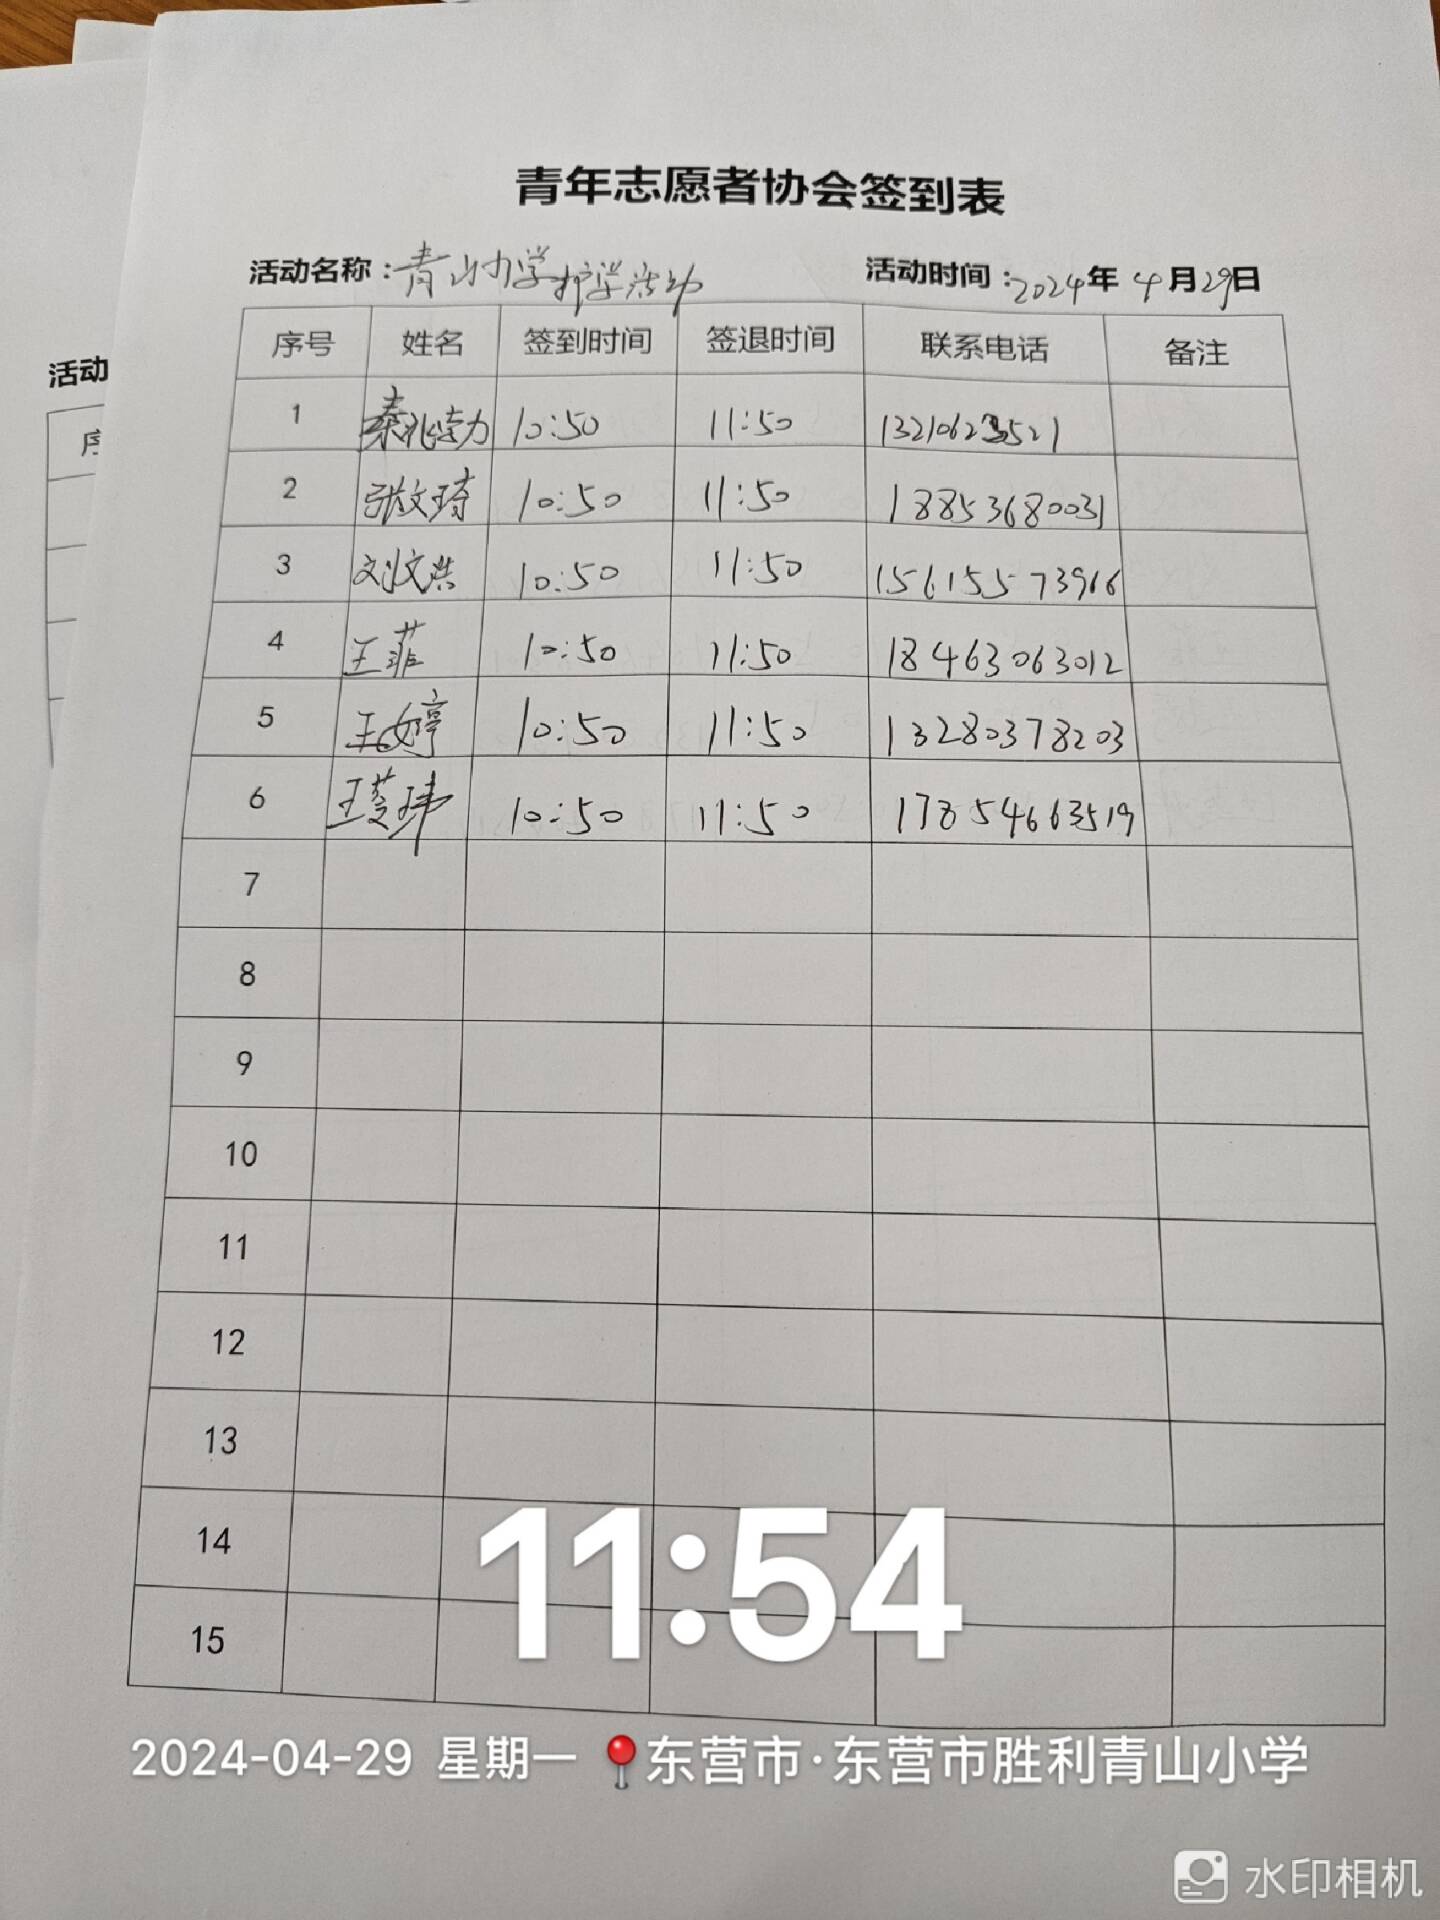 青年志愿者协会签到表
活动名称：青山小学护学活动 活动时间：2024年 4月29日
序号 姓名 签到时间 签退时间 联系电话 备注
1 10:50 11:50
2 张文琦 10:50 11:50 18853680031
3 刘文洪 10:50 11:50 15615573966
4 王菲 10:50 11:50 18463063012
5 王婷 10:50 11:50 13280378203
6 王菱玮 10:50 11:50 17854663519
7
8
9
10
11
12
13
14
15
活动
序
11:54
2024-04-29 星期一 东营市·东营市胜利青山小学
水印相机